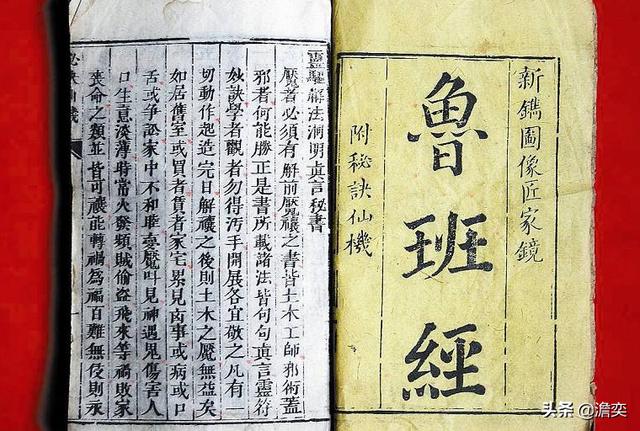 新鐫圖像匠家鏡
魯班經
附秘訣仙機
靈驅解法洞明真言秘書
魘者必須有解前魘禳之書皆土木工師邪術蓋
邪者何能勝正是書所載諸法皆句句真言靈符
妙訣學者觀者勿得污手開展各宜敬之凡有一
切動作起造完日解禳之後則土木之魘無益矣
如居舊室或買者賃者家宅累見凶事或病或口
舌或爭訟家中不和睡臺魘叫見神遇鬼傷害人
口生意淡薄時常火發頻賊偷盜飛來等禍敗家
喪命之類並皆可禳能轉禍為福百難無侵則永
秘訣仙機
頭条 @澹奕